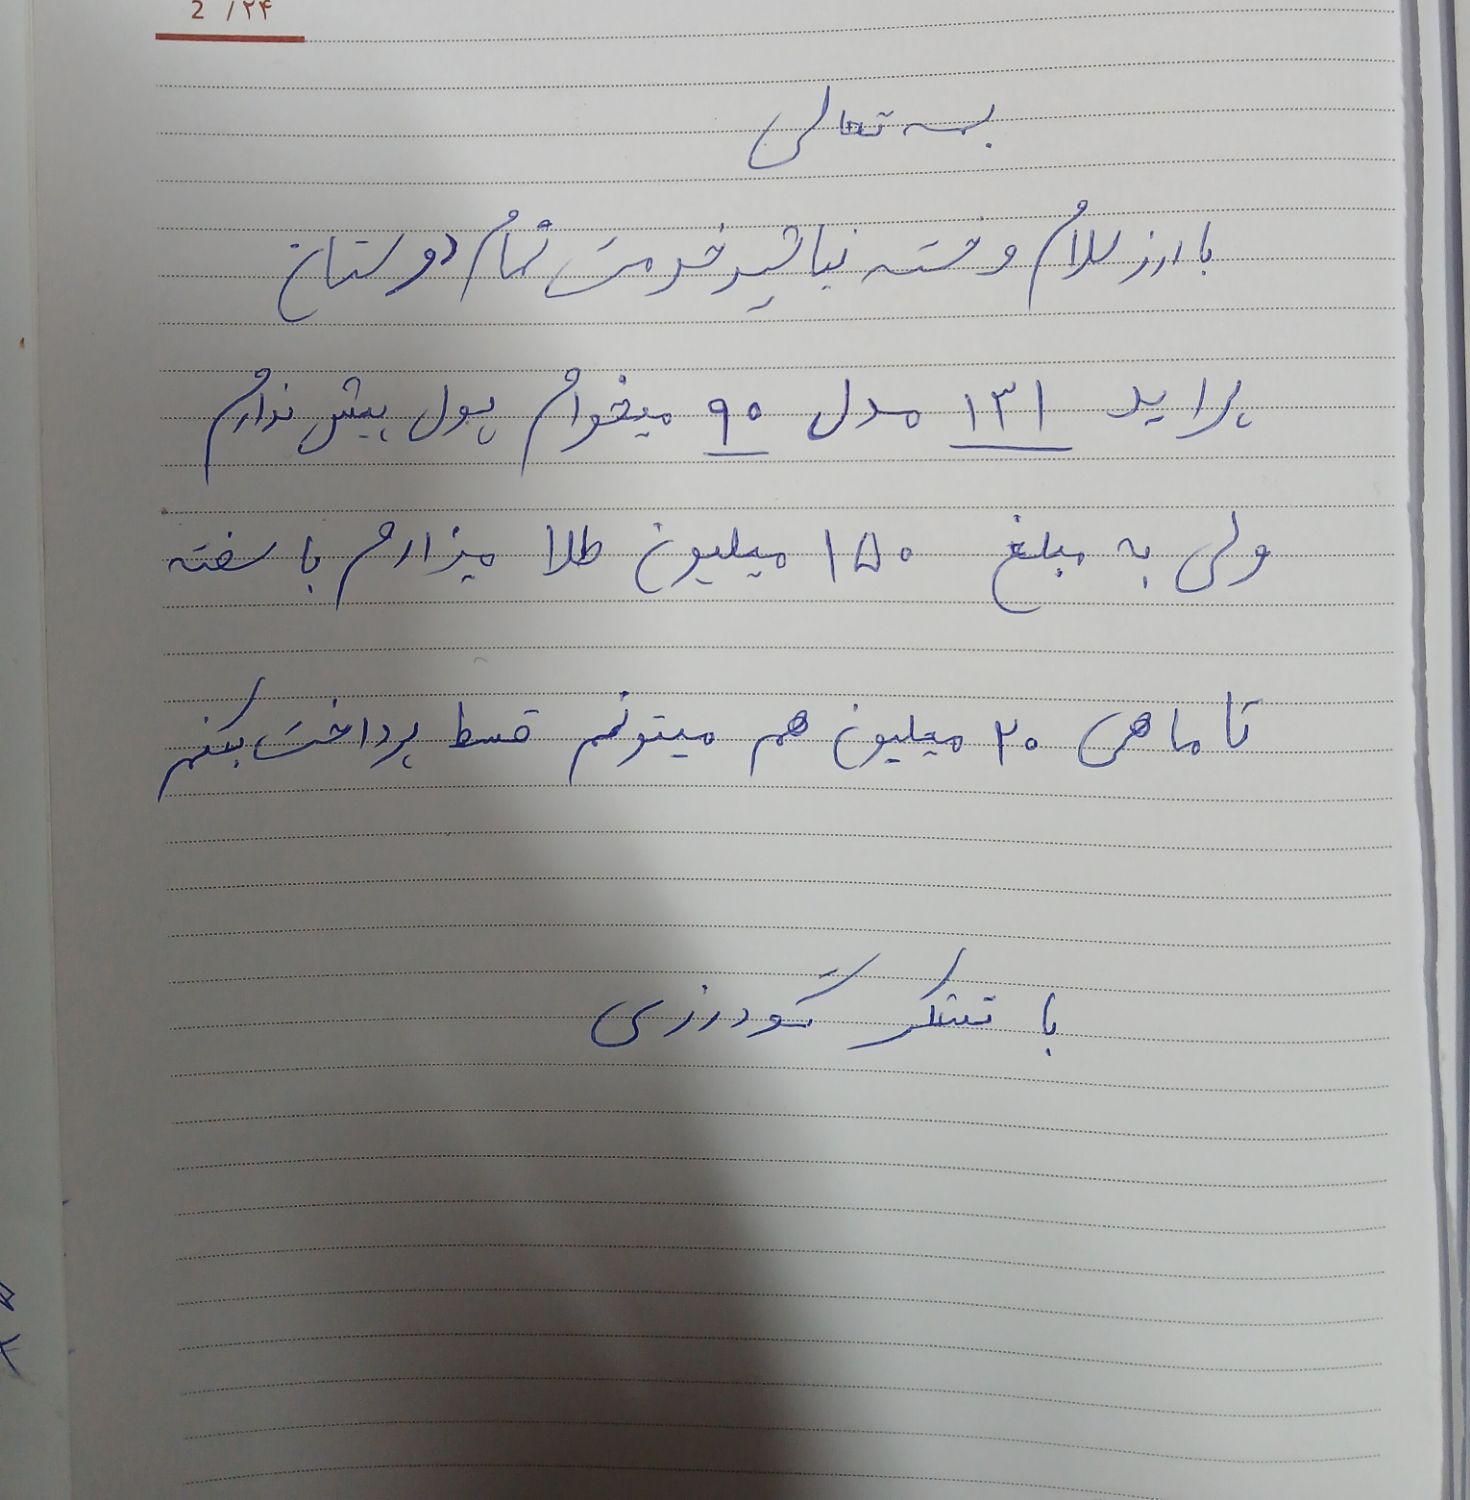 2 / ۲۴
بسه تعالی
با ارز سلام و خسته نباشید خدمت تمام دوستان
پراید ۱۳۱ مدل ۹۰ میخوام پول پیش ندارم
ولی به مبلغ ۱۵۰ میلیون طلا میزارم با سفته
تا ماهی ۲۰ میلیون هم میتونم قسط پرداخت بکنم
با تشکر گودرزی